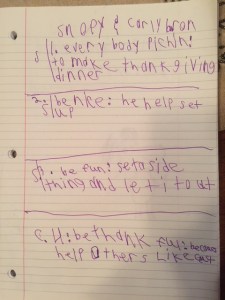 snopy & carly bron
S 1. every body pichin:
to make thankgiving
dinner
2. be nke: he help set
up
be fun: setaside
thing and let i to ut
C. 4: be thank ful: because
help others like cast